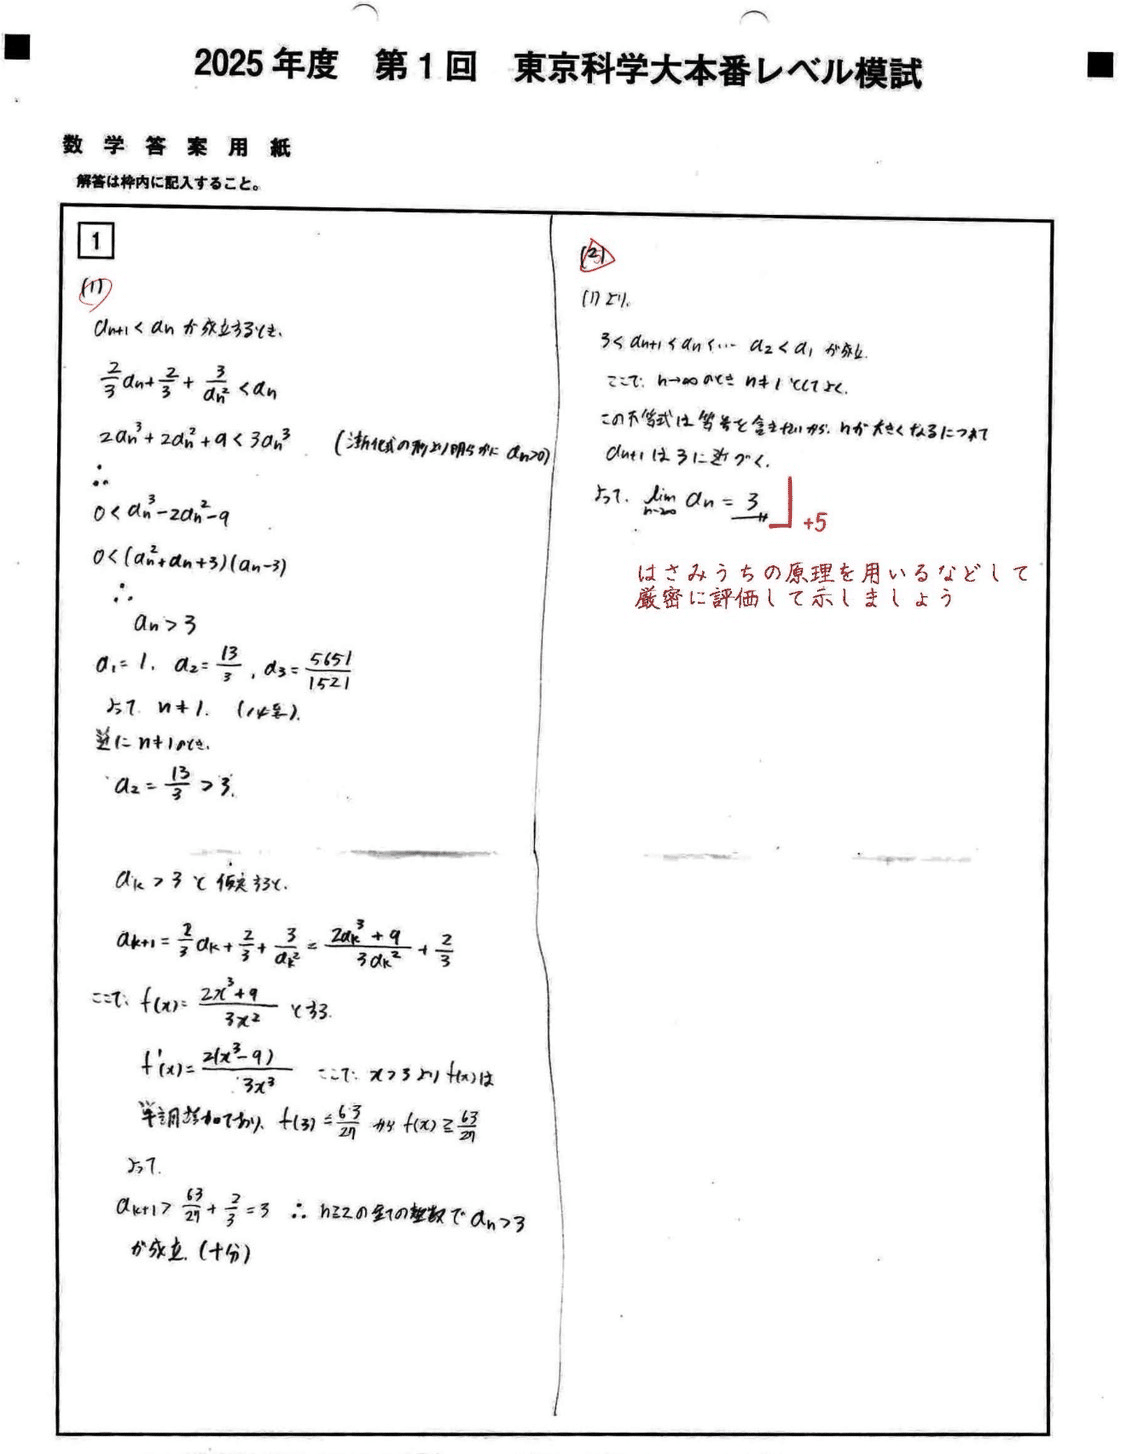 2025年度 第1回 東京科学大本番レベル模試
数学答案用紙
解答は枠内に記入すること。
1
(1)
an+1 < an が成立するとき、
2/3 an + 2/3 + 3/an² < an
2an³ + 2an² + 9 < 3an³ (漸化式の形より明らかに an>0)
∴
0 < an³ - 2an² - 9
0 < (an² + an + 3)(an - 3)
∴
an > 3
a1 = 1, a2 = 13/3, a3 = 5651/1521
よって n ≠ 1. (必要).
逆に n ≠ 1 のとき、
a2 = 13/3 > 3.
ak > 3 と仮定すると、
ak+1 = 2/3 ak + 2/3 + 3/ak² = (2ak³ + 9)/(3ak²) + 2/3
ここで、f(x) = (2x³+9)/(3x²) とする.
f'(x) = 2(x³-9)/(3x³) ここで、x>3 より f(x)は
単調増加であり、f(3) = 63/27 から f(x) ≧ 63/27
よって.
ak+1 > 63/27 + 2/3 = 3 ∴ n≧2の全ての整数で an > 3
が成立. (十分)
(2)
(1)より.
3 < an+1 < an < … a2 < a1 が成立.
ここで、n→∞のとき n ≠ 1 としてよく.
この不等式は等号を含まないから、nが大きくなるにつれて
an+1 は 3 に近づく.
よって. lim n→∞ an = 3
+5
はさみうちの原理を用いるなどして
厳密に評価して示しましょう